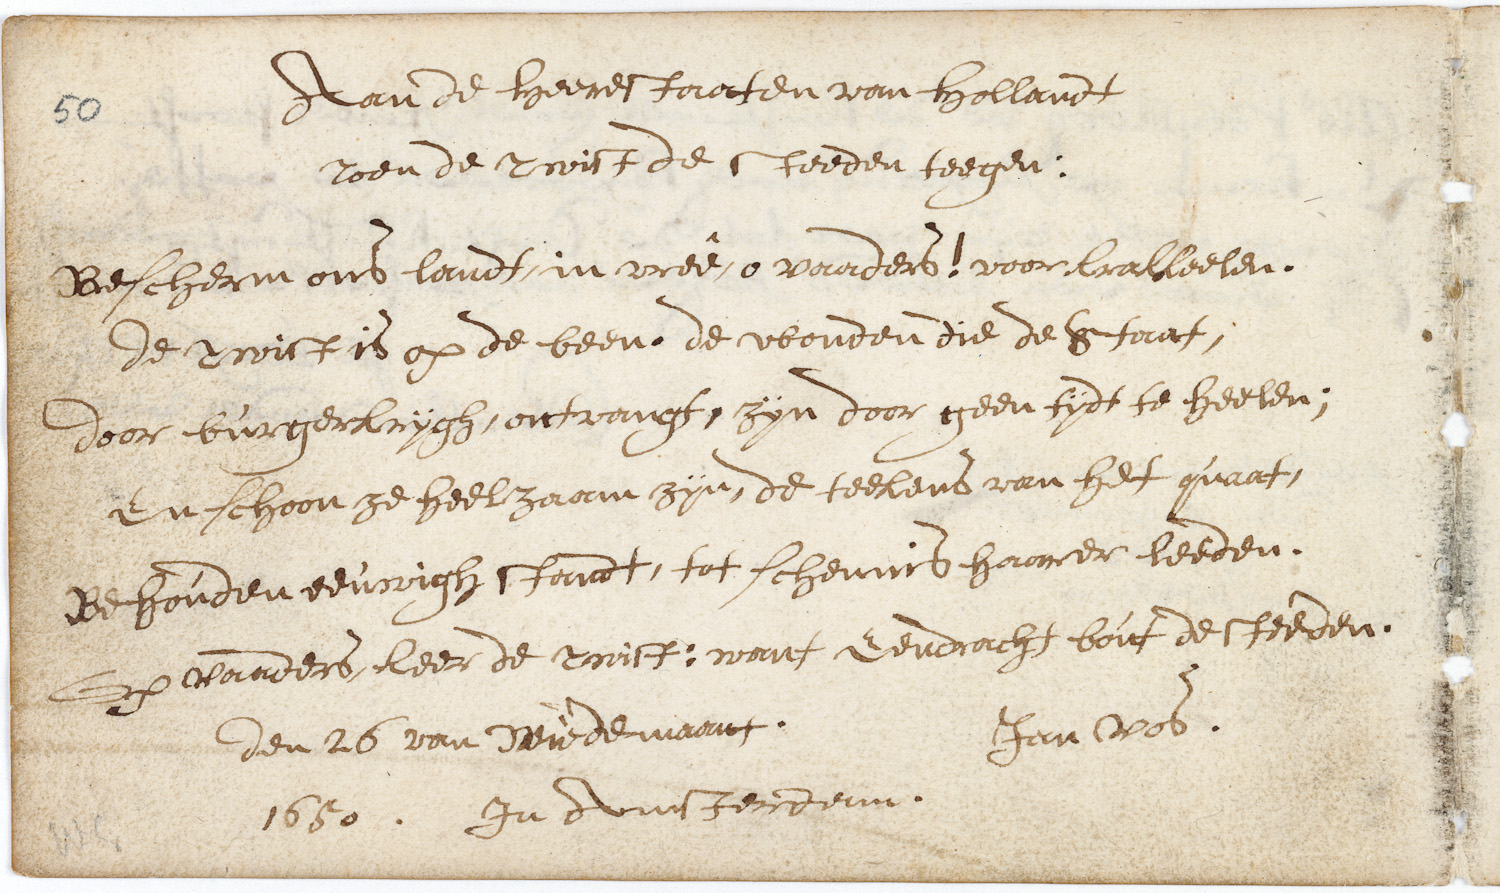 50
Aan de Heere Staaten van Hollandt
toen de twist de Steeden teegen:
Bescherm ons landt, in vreê, o vaaders! voor krakkeelen.
de twist is op de been. de wonden die de Staat,
door burgerkrygh, ontvangt, zyn door geen tydt te heelen;
En schoon ze heelzaam zyn, de teekens van het quaat,
Behouden eeuwigh standt, tot schennis haarer leeden.
Op vaaders, keer de twist: want Eendracht bout de steeden.
den 26 van Wiedemaant. Jan Vos.
1650. In Amsterdam.